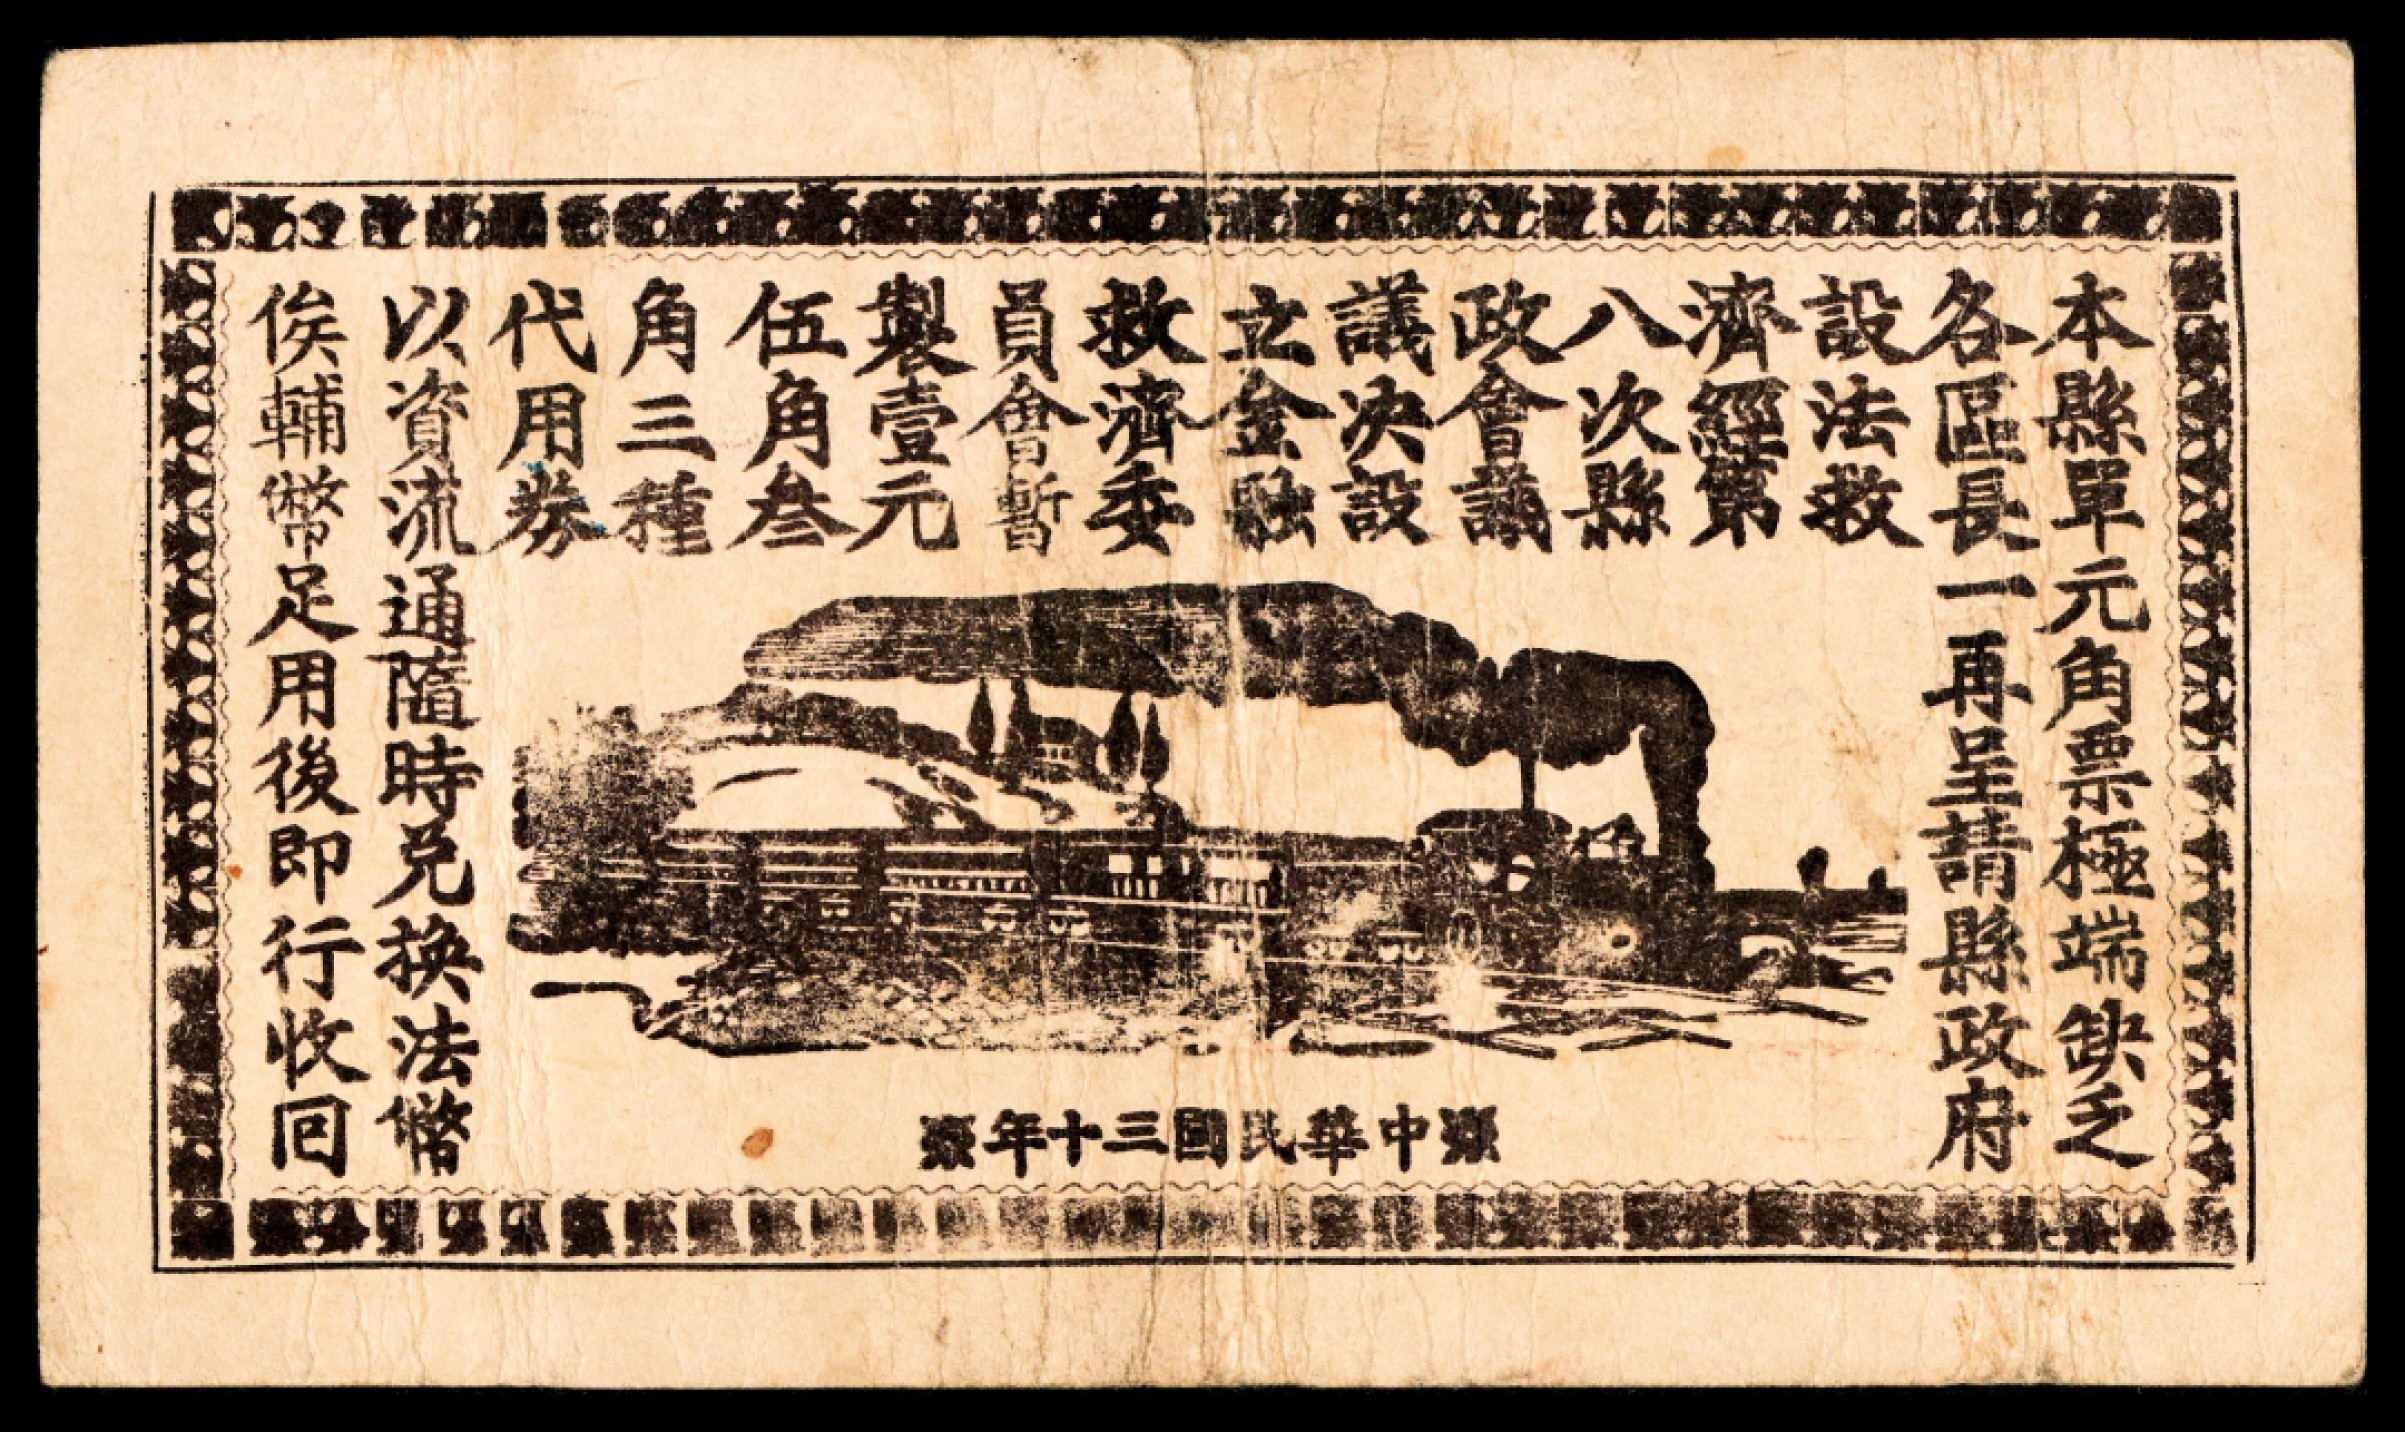 本縣單元角票極端缺乏
各區長一再呈請縣政府
設法救
濟經第
八次縣
政會議
議决設
立金融
救濟委
員會暫
製壹元
伍角叁
角三種
代用券
以資流通隨時兑换法幣
俟輔幣足用後即行收回
年十三國民華中